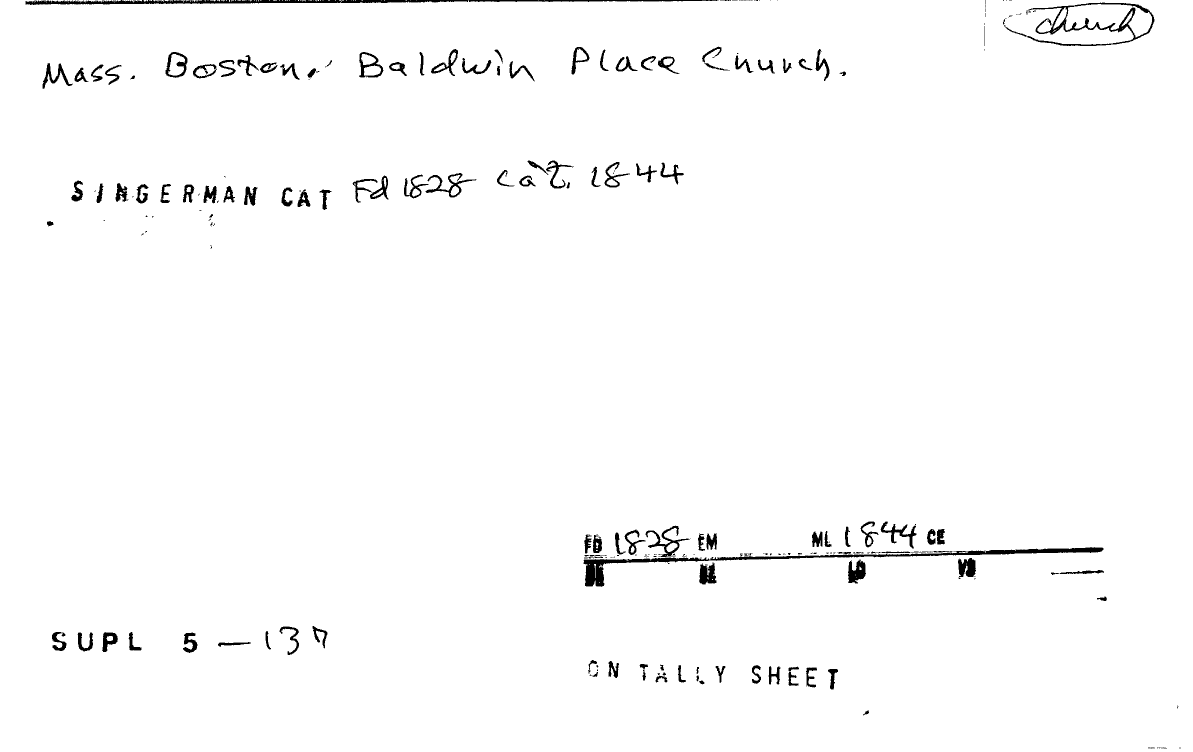 church
Mass. Boston. Baldwin Place Church.
SINGERMAN CAT Fd 1828 cat. 1844
FD 1828 EM ML 1844 CE
LO VO
SUPL 5 — 137
ON TALLY SHEET